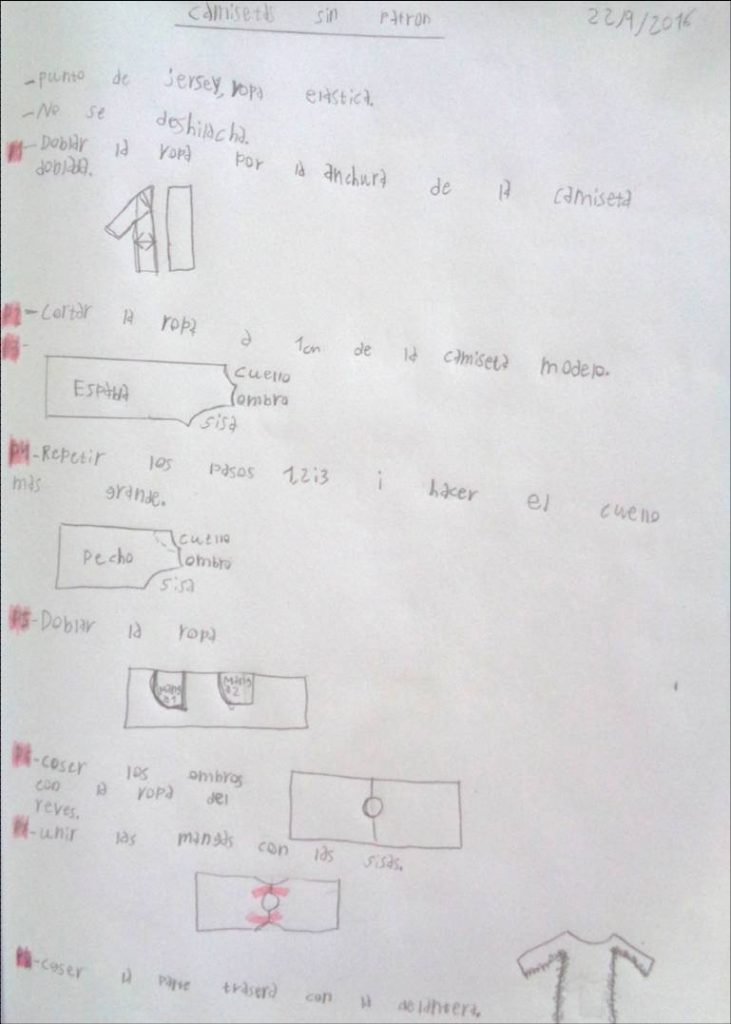 Camisetas sin patron
22/9/2016
-punto de jersey, ropa elastica.
-No se deshilacha.
P1-Doblar la ropa por la anchura de la camiseta
doblada.
P2-Cortar la ropa a 1cm de la camiseta modelo.
P3-
Espalda
cuello
ombro
sisa
P4-Repetir los pasos 1,2i3 i hacer el cuello
mas grande.
Pecho
cuello
ombro
sisa
P5-Doblar la ropa
manga 1
manga 2
P6-coser los ombros
con la ropa del
reves.
P7-unir las mangas con las sisas.
P8-coser la parte trasera con la delantera.